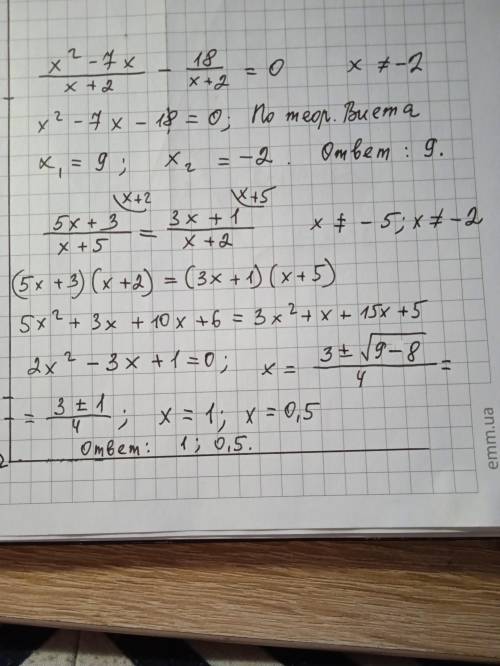 (x² - 7x)/(x + 2) - 18/(x + 2) = 0   x ≠ -2
x² - 7x - 18 = 0; По теор. Виета
x₁ = 9; x₂ = -2. Ответ: 9.
x+2   x+5
(5x + 3)/(x + 5) = (3x + 1)/(x + 2)   x ≠ -5; x ≠ -2
(5x + 3)(x + 2) = (3x + 1)(x + 5)
5x² + 3x + 10x + 6 = 3x² + x + 15x + 5
2x² - 3x + 1 = 0; x = (3 ± √(9 - 8))/4 =
= (3 ± 1)/4; x = 1; x = 0,5
Ответ: 1; 0,5.
emm.ua